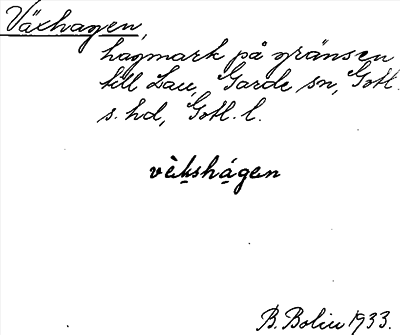 Växhagen,
hagmark på gränsen
till Lau, Garde sn, Gotl.
s. hd, Gotl. l.
vèk̠shá̠gen
B. Bolin 1933.